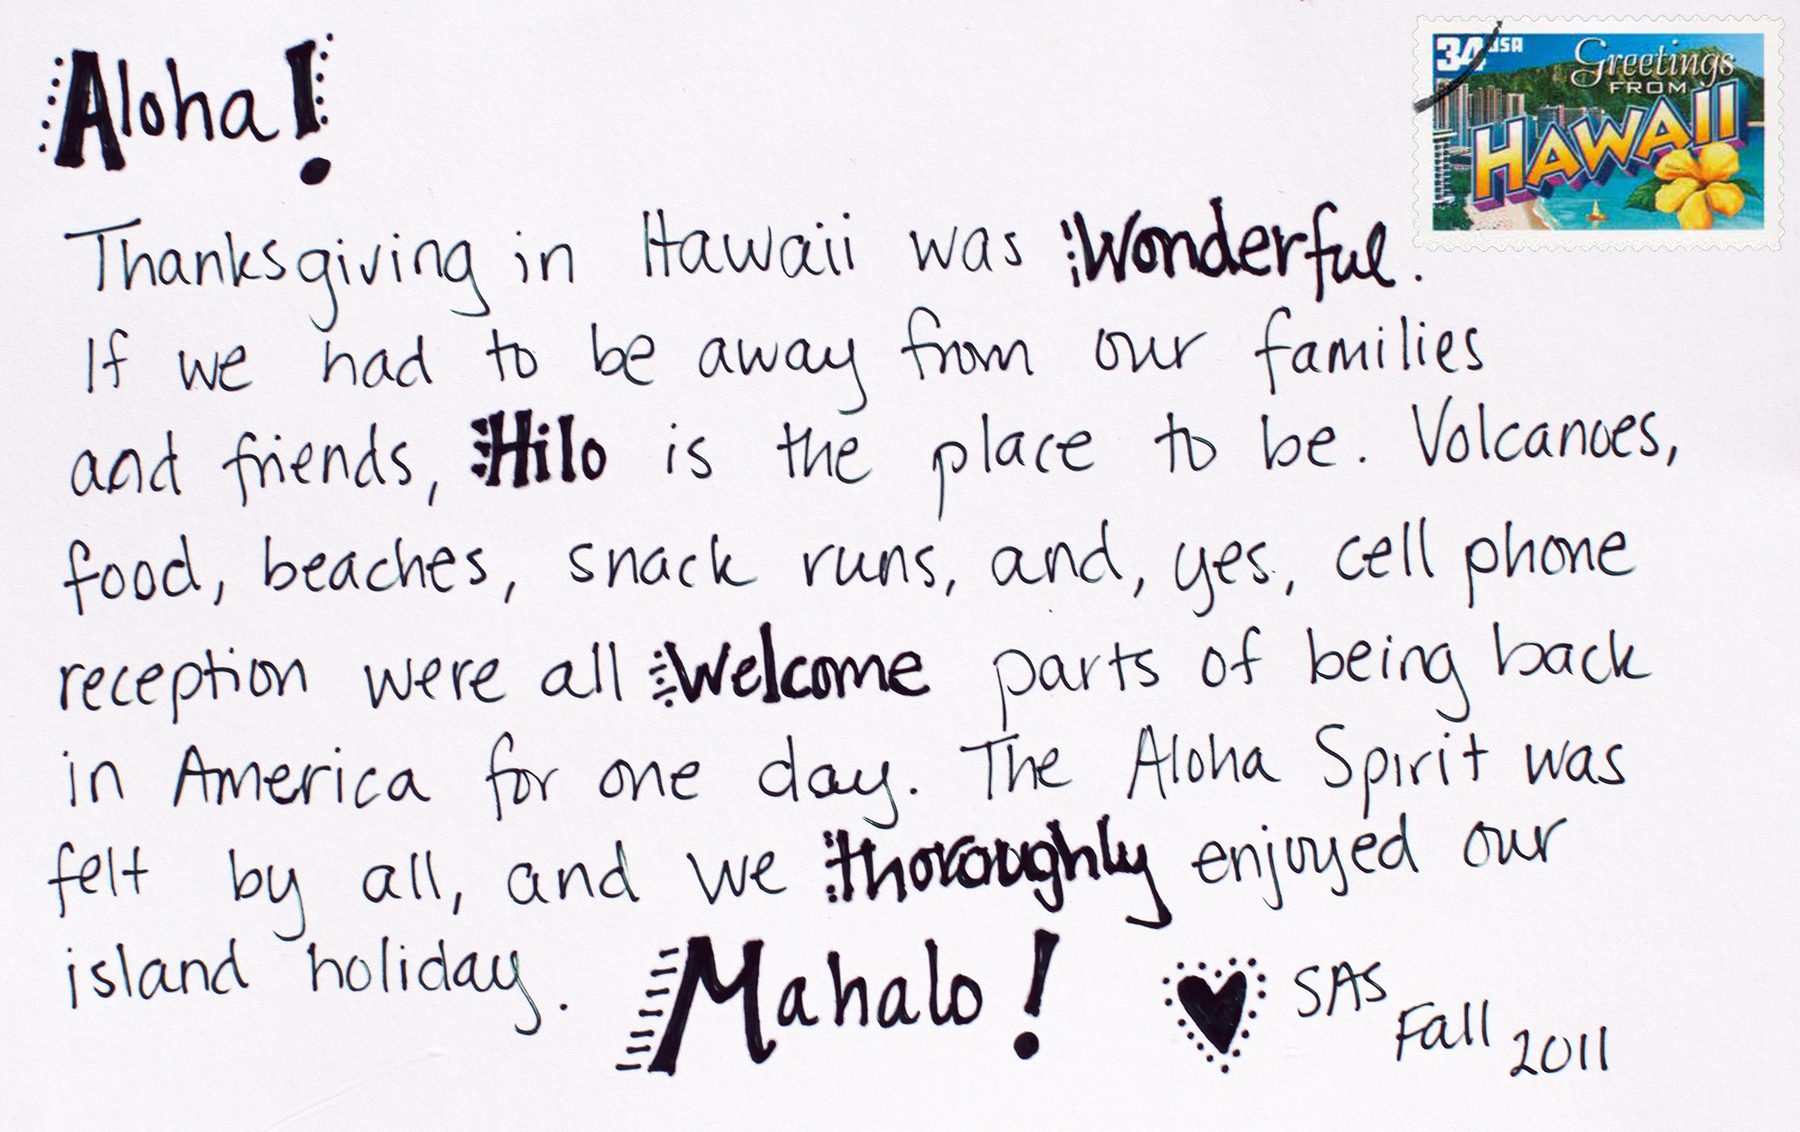 Aloha!
34 USA
Greetings
FROM
HAWAII
Thanksgiving in Hawaii was Wonderful.
If we had to be away from our families
and friends, Hilo is the place to be. Volcanoes,
food, beaches, snack runs, and, yes, cell phone
reception were all Welcome parts of being back
in America for one day. The Aloha Spirit was
felt by all, and we thoroughly enjoyed our
island holiday. Mahalo! ♥ SAS
Fall 2011